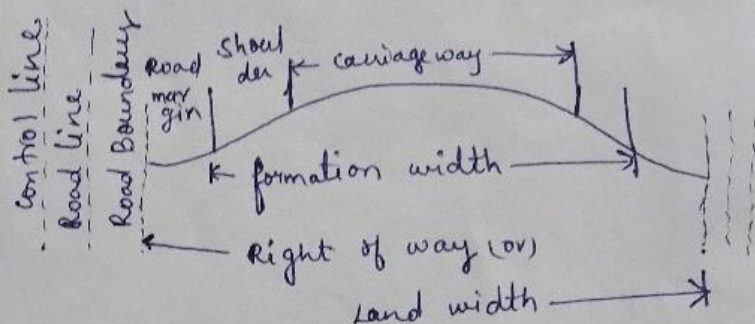 Control line
Road line
Road Boundary
Road
mar
gin
Shoul
der
Carriage way
formation width
Right of way (or)
Land width